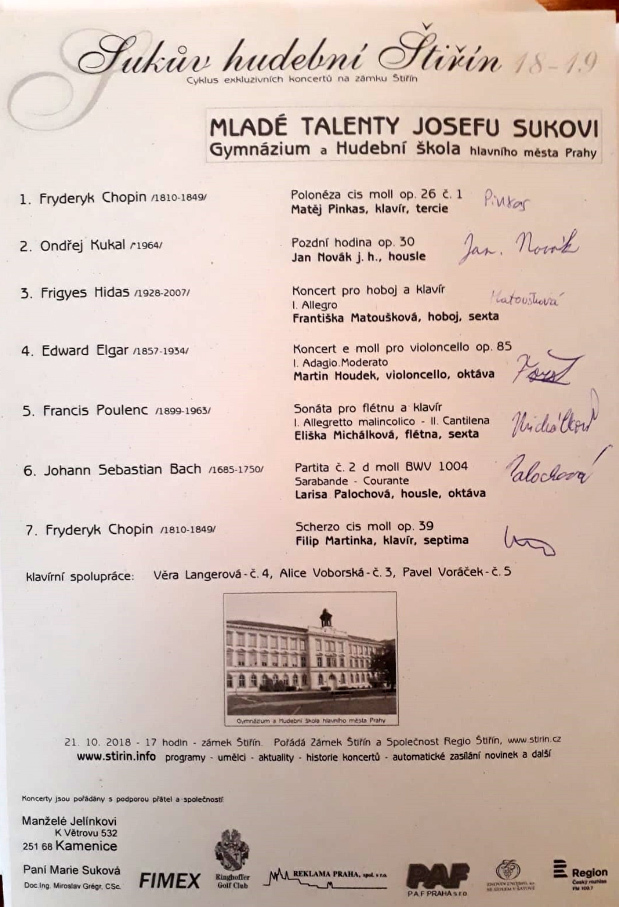 Sukův hudební Štiřín 18-19
Cyklus exkluzivních koncertů na zámku Štiřín
MLADÉ TALENTY JOSEFU SUKOVI
Gymnázium a Hudební škola hlavního města Prahy
1. Fryderyk Chopin /1810-1849/ Polonéza cis moll op. 26 č. 1 Pinkas
Matěj Pinkas, klavír, tercie
2. Ondřej Kukal /*1964/ Pozdní hodina op. 30 Jan. Novák
Jan Novák j. h., housle
3. Frigyes Hidas /1928-2007/ Koncert pro hoboj a klavír Matoušková
I. Allegro
Františka Matoušková, hoboj, sexta
4. Edward Elgar /1857-1934/ Koncert e moll pro violoncello op. 85
I. Adagio.Moderato
Martin Houdek, violoncello, oktáva
5. Francis Poulenc /1899-1963/ Sonáta pro flétnu a klavír
I. Allegretto malincolico - II. Cantilena Michálková
Eliška Michálková, flétna, sexta
6. Johann Sebastian Bach /1685-1750/ Partita č. 2 d moll BWV 1004 Palochová
Sarabande - Courante
Larisa Palochová, housle, oktáva
7. Fryderyk Chopin /1810-1849/ Scherzo cis moll op. 39
Filip Martinka, klavír, septima
klavírní spolupráce: Věra Langerová-č. 4, Alice Voborská-č. 3, Pavel Voráček-č. 5
Gymnázium a Hudební škola hlavního města Prahy
21. 10. 2018 - 17 hodin - zámek Štiřín. Pořádá Zámek Štiřín a Společnost Regio Štiřín, www.stirin.cz
www.stirin.info programy - umělci - aktuality - historie koncertů - automatické zasílání novinek a další
Koncerty jsou pořádány s podporou přátel a společností:
Manželé Jelínkovi
K Větrovu 532
251 68 Kamenice
Paní Marie Suková
Doc.Ing. Miroslav Grégr, CSc.
FIMEX
Ringhoffer
Golf Club
REKLAMA PRAHA, spol. s r.o.
PAF
P.A.F PRAHA s.r.o.
Region
Český rozhlas
FM 100.7